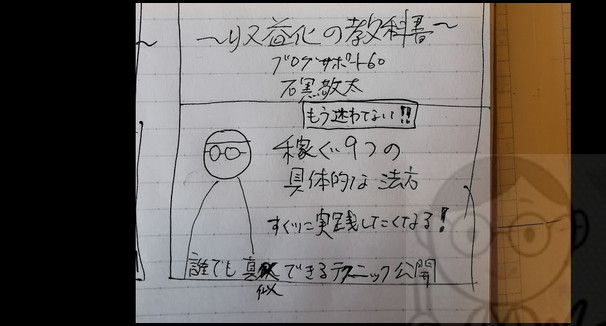 ～収益化の教科書～
ブログサポート60
石黒敬太
もう迷わない!!
稼ぐ9つの
具体的な法方
すぐに実践したくなる!
誰でも真似できるテクニック公開